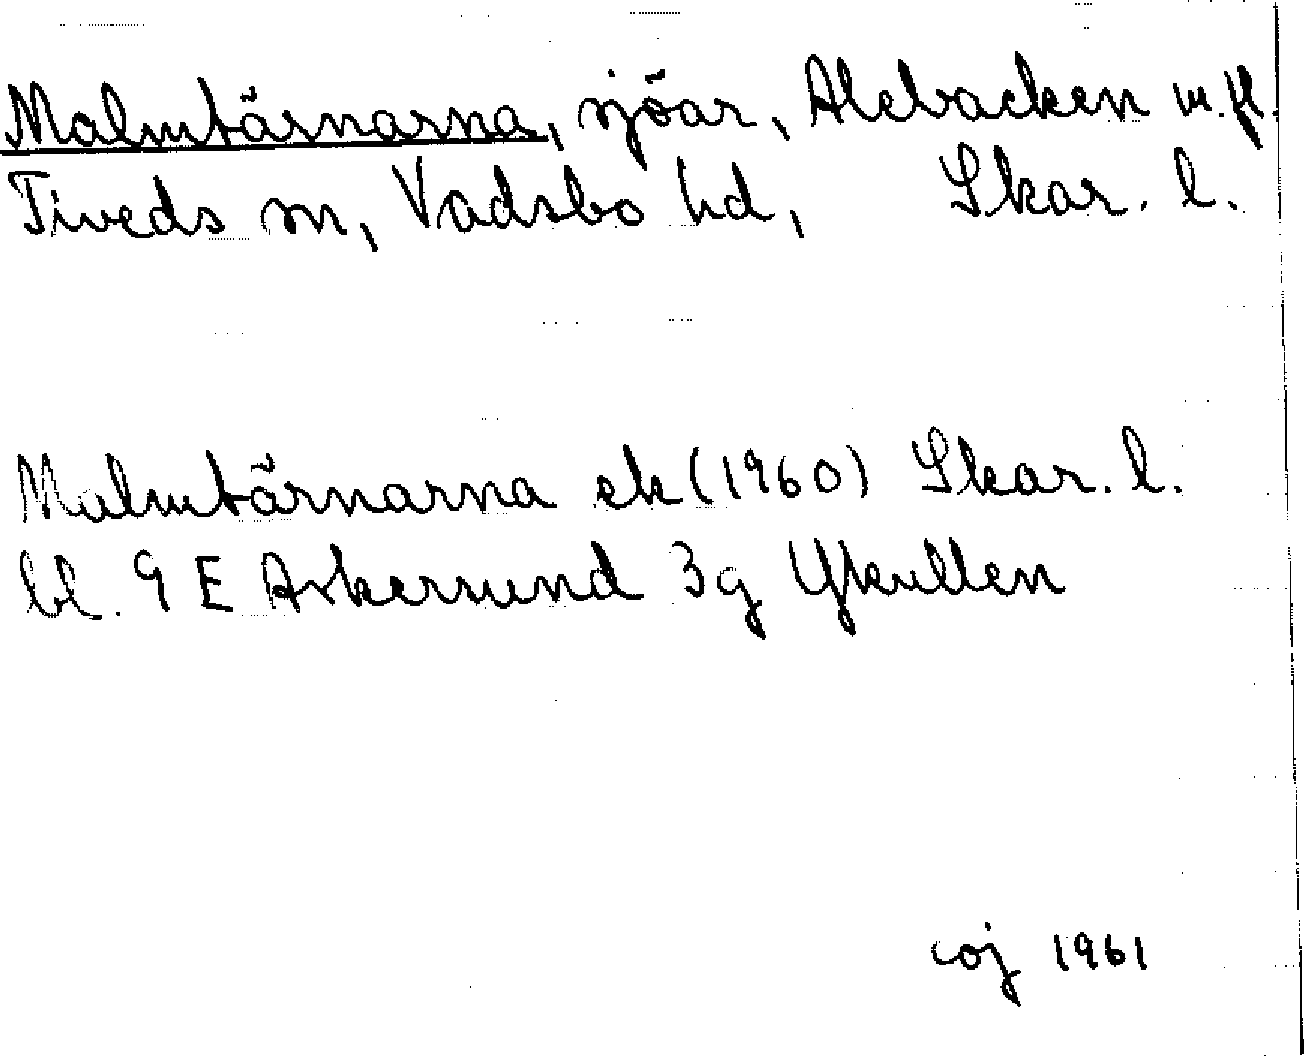 Malmtärnarna, sjöar, Alebacken m.fl.
Tiveds sn, Vadsbo hd, Skar. l.
Malmtärnarna ek (1960) Skar. l.
bl. 9 E Askersund 3g Ykullen
coj 1961